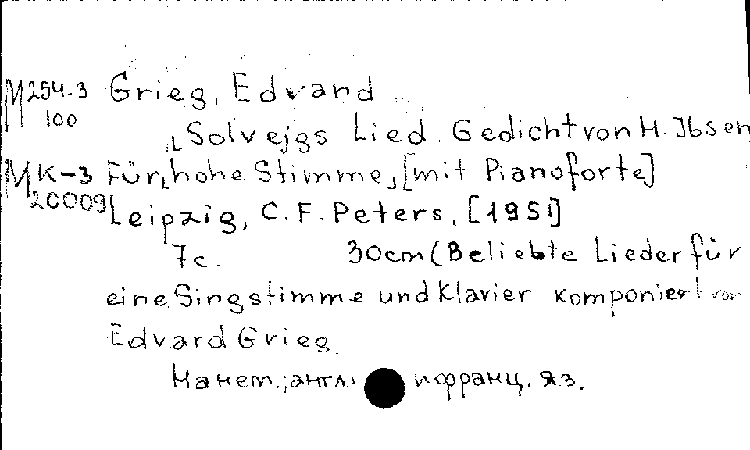 М254-3 Grieg, Edvard
100
„Solvejgs Lied. Gedicht von H. Ibsen
МК-3 Für hohe Stimme„ [mit Pianoforte]
20009 Leipzig, C. F. Peters, [1951]
7с. 30cm (Beliebte Lieder für
eine Singstimme und Klavier komponiert von
Edvard Grieg.
На нем., англ. и франц. яз.